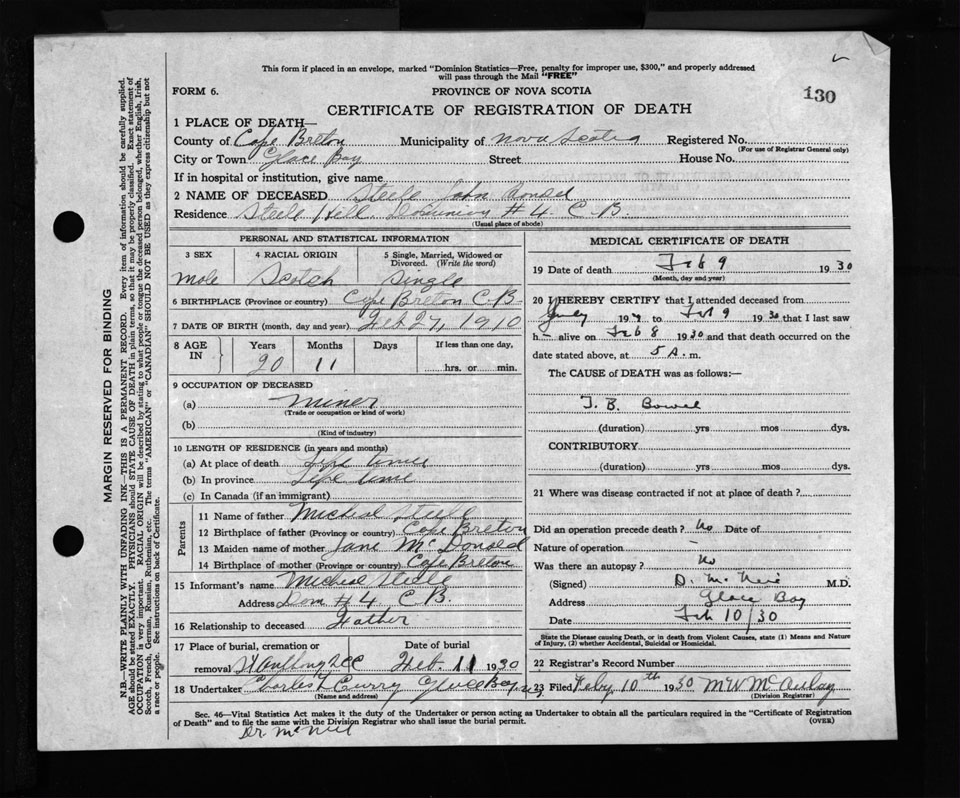 This form if placed in an envelope, marked "Dominion Statistics—Free, penalty for improper use, $300," and properly addressed
will pass through the Mail "FREE"
FORM 6.
PROVINCE OF NOVA SCOTIA
130
CERTIFICATE OF REGISTRATION OF DEATH
1 PLACE OF DEATH—
County of Cape Breton Municipality of Nova Scotia Registered No.
(For use of Registrar General only)
City or Town Glace Bay Street House No.
If in hospital or institution, give name
2 NAME OF DECEASED Steele John Donald
Residence Steele Hill Dominion #4. C.B.
(Usual place of abode)
PERSONAL AND STATISTICAL INFORMATION
3 SEX
4 RACIAL ORIGIN
5 Single, Married, Widowed or Divorced. (Write the word)
Male Scotch Single
6 BIRTHPLACE (Province or country) Cape Breton C B
7 DATE OF BIRTH (month, day and year) Feb 27, 1910
8 AGE IN
Years Months Days If less than one day,
20 11 hrs. or min.
9 OCCUPATION OF DECEASED
(a) Miner
(Trade or occupation or kind of work)
(b)
(Kind of industry)
10 LENGTH OF RESIDENCE (in years and months)
(a) At place of death Life time
(b) In province Life time
(c) In Canada (if an immigrant)
Parents
11 Name of father Micheal Steele
12 Birthplace of father (Province or country) Cape Breton
13 Maiden name of mother Jane McDonald
14 Birthplace of mother (Province or country) Cape Breton
15 Informant's name Micheal Steele
Address Dom #4 C B.
16 Relationship to deceased Father
17 Place of burial, cremation or removal Date of burial
Feb. 11 1930
18 Undertaker Charles Curry Glace Bay
(Name and address)
MEDICAL CERTIFICATE OF DEATH
19 Date of death Feb 9 1930
(Month, day and year)
20 I HEREBY CERTIFY that I attended deceased from
19 to Feb 9 1930 that I last saw
h alive on Feb 8 1930 and that death occurred on the
date stated above, at 5 A. m.
The CAUSE of DEATH was as follows:—
T. B. Bowel
(duration) yrs mos dys.
CONTRIBUTORY
(duration) yrs mos dys.
21 Where was disease contracted if not at place of death?
Did an operation precede death? No Date of
Nature of operation
Was there an autopsy? No
(Signed) D. McNeil M.D.
Address Glace Bay
Date Feb 10/30
State the Disease causing Death, or in death from Violent Causes, state (1) Means and Nature
of Injury, (2) whether Accidental, Suicidal or Homicidal.
22 Registrar's Record Number
23 Filed Feby 10th 1930 M W McAulay
(Division Registrar)
Sec. 46—Vital Statistics Act makes it the duty of the Undertaker or person acting as Undertaker to obtain all the particulars required in the "Certificate of Registration
of Death" and to file the same with the Division Registrar who shall issue the burial permit.
(OVER)
Dr McNeil
MARGIN RESERVED FOR BINDING
N.B.—WRITE PLAINLY WITH UNFADING INK—THIS IS A PERMANENT RECORD. Every item of information should be carefully supplied.
AGE should be stated EXACTLY. PHYSICIANS should STATE CAUSE OF DEATH in plain terms, so that it may be properly classified. Exact statement of
OCCUPATION is very important. RACIAL ORIGIN will be described by stating to what people or tongue the deceased person belonged, whether English, Irish,
Scotch, French, German, Russian, Ruthenian, etc. The terms "AMERICAN" or "CANADIAN" SHOULD NOT BE USED as they express citizenship but not
a race or people. See instructions on back of Certificate.